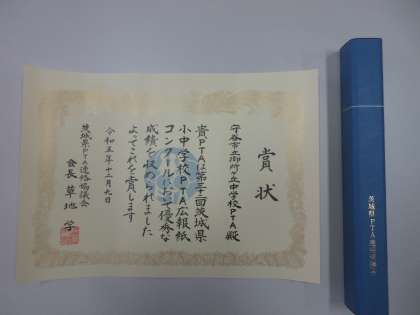 賞状
守谷市立御所ヶ丘中学校PTA殿
貴PTAは第三十一回茨城県
小中学校PTA広報紙
コンクールにおいて優秀な
成績を収められました
よってこれを賞します
令和五年十二月九日
茨城県PTA連絡協議会
会長 草地 学
茨城県PTA連絡協議会